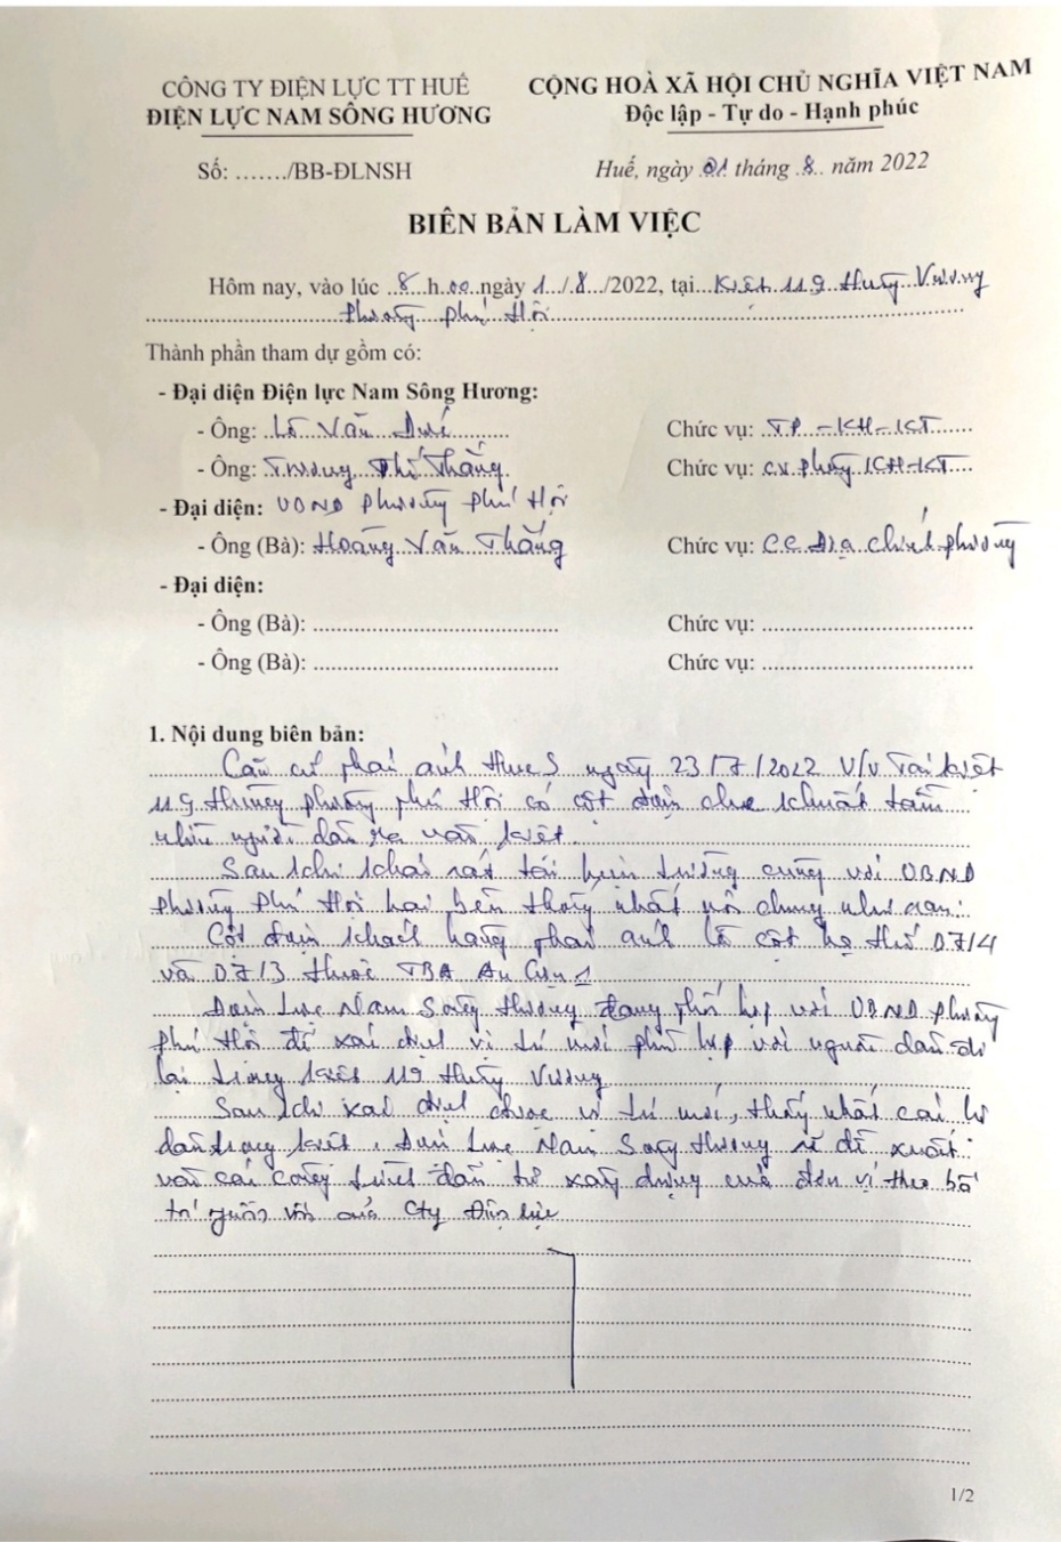 CÔNG TY ĐIỆN LỰC TT HUẾ
ĐIỆN LỰC NAM SÔNG HƯƠNG
CỘNG HOÀ XÃ HỘI CHỦ NGHĨA VIỆT NAM
Độc lập - Tự do - Hạnh phúc
Số: ......./BB-ĐLNSH
Huế, ngày 01 tháng 8 năm 2022
BIÊN BẢN LÀM VIỆC
Hôm nay, vào lúc 8 h 00 ngày 1 / 8 /2022, tại Kiệt 119 Hùng Vương
Phường Phú Hội
Thành phần tham dự gồm có:
- Đại diện Điện lực Nam Sông Hương:
- Ông: Lê Văn Chức vụ: TP - KH-KT
- Ông: Trương Thắng Chức vụ: CV. Phòng KH-KT
- Đại diện: UBND Phường Phú Hội
- Ông (Bà): Hoàng Văn Thắng Chức vụ: CC Địa chính phường
- Đại diện:
- Ông (Bà): ........ Chức vụ: ........
- Ông (Bà): ........ Chức vụ: ........
1. Nội dung biên bản:
Căn cứ phản ánh Hue S ngày 23/7/2022 V/v Tại kiệt
119 phường Phú Hội có cột điện che khuất tầm
nhìn người dân ra vào kiệt.
Sau khi khảo sát tại hiện trường cùng với UBND
Phường Phú Hội hai bên thống nhất nội dung như sau:
Cột điện khách hàng phản ánh là cột hạ thế D7/4
và D7/3 thuộc TBA An Cựu 1
Điện Lực Nam Sông Hương đang phối hợp với UBND phường
Phú Hội để xác định vị trí mới phù hợp với người dân đi
lại trong kiệt 119 Hùng Vương
Sau khi xác định được vị trí mới, thống nhất các hộ
dân trong kiệt, Điện Lực Nam Sông Hương sẽ đề xuất
vào các công trình đầu tư xây dựng của đơn vị theo bố
trí nguồn vốn của Cty Điện lực
1/2